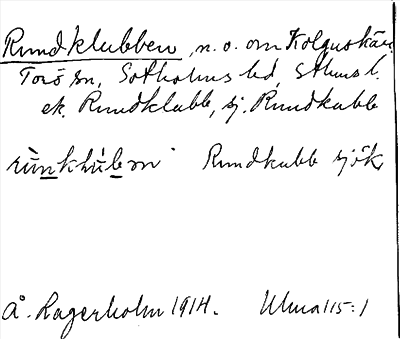 Rundklubben, n. o. om Kolguskär
Torö sn, Sotholms hd, Sthms l.
ek. Rundklubb, sj. Rundkubb
Rundkubb sjök
Å. Lagerholm 1914. Ulma 115:1